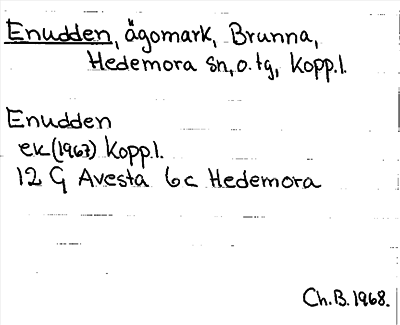 Enudden, ägomark, Brunna,
Hedemora sn, o. tg, Kopp.l.
Enudden
ek (1967) Kopp.l.
12 G Avesta 6c Hedemora
Ch.B. 1968.